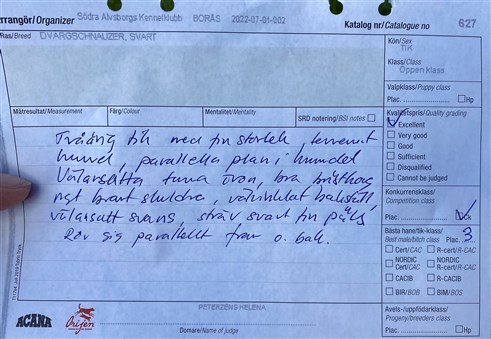 Arrangör/Organizer Södra Älvsborgs Kennelklubb BORÅS 2022-07-01-002
Katalog nr/Catalogue no 627
Ras/Breed DVÄRGSCHNAUZER, SVART
Kön/Sex
TIK
Klass/Class
Öppen klass
Valpklass/Puppy class
Plac. Hp
Mätresultat/Measurement Färg/Colour Mentalitet/Mentality SRD notering/BSI notes
Kvalitetspris/Quality grading
Excellent
Very good
Good
Sufficient
Disqualified
Cannot be judged
Konkurrensklass/
Competition class
Plac. Ck
Bästa hane/tik-klass/
Best male/bitch class Plac. 3
Cert/CAC R-cert/R-CAC
NORDIC Cert/CAC NORDIC R-CAC
CACIB R-CACIB
BIR/BOB BIM/BOS
Avels-/uppfödarklass/
Progeny/breeders class
Plac. Hp
Tvåårig tik med fin storlek,
hund, parallella plan i huvudet
Välansatta tunna öron, bra
ngt brant skuldra, välvinklat bakställ,
välansatt svans, sträv svart fin päls
Rör sig parallellt fram o. bak.
ACANA Orijen
PETERZENS HELENA
Domare/Name of judge